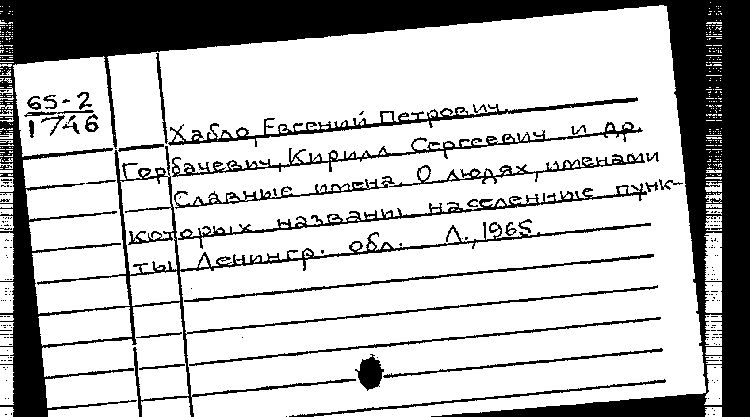 65-2
1746
Хабло, Евгений Петрович.
Горбачевич, Кирилл Сергеевич и др.
Славные имена. О людях, именами
которых названы населенные пунк-
ты Ленингр. обл. Л., 1965.